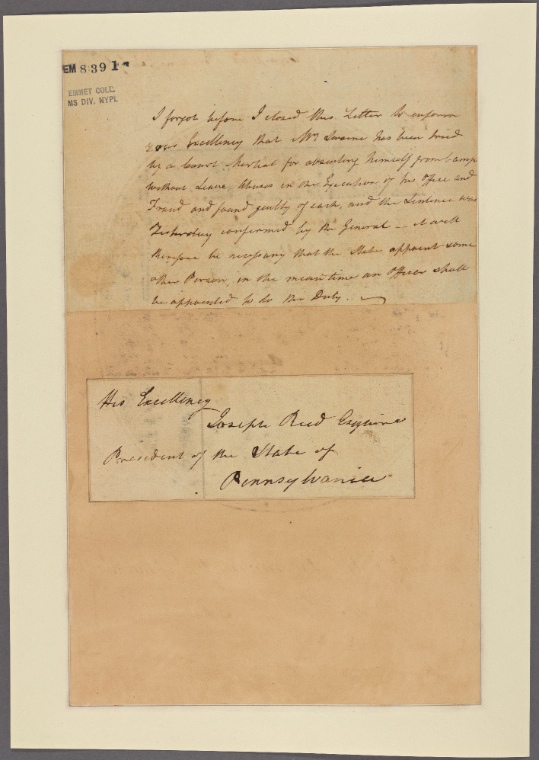 EM 8391
EMMET COLL.
MS DIV. NYPL
I forgot before I closed this Letter to inform
your Excellency that Mr Swaine has been tried
by a Court Martial for absenting himself from Camp
without Leave, Abuses in the Execution of his Office and
Fraud and found guilty of each, and the Sentence was
Yesterday confirmed by the General — it will
therefore be necessary that the State appoint some
other Person, in the mean time an Officer shall
be appointed to do the Duty. —
His Excellency
Joseph Reed Esquire
President of the State of
Pennsylvania